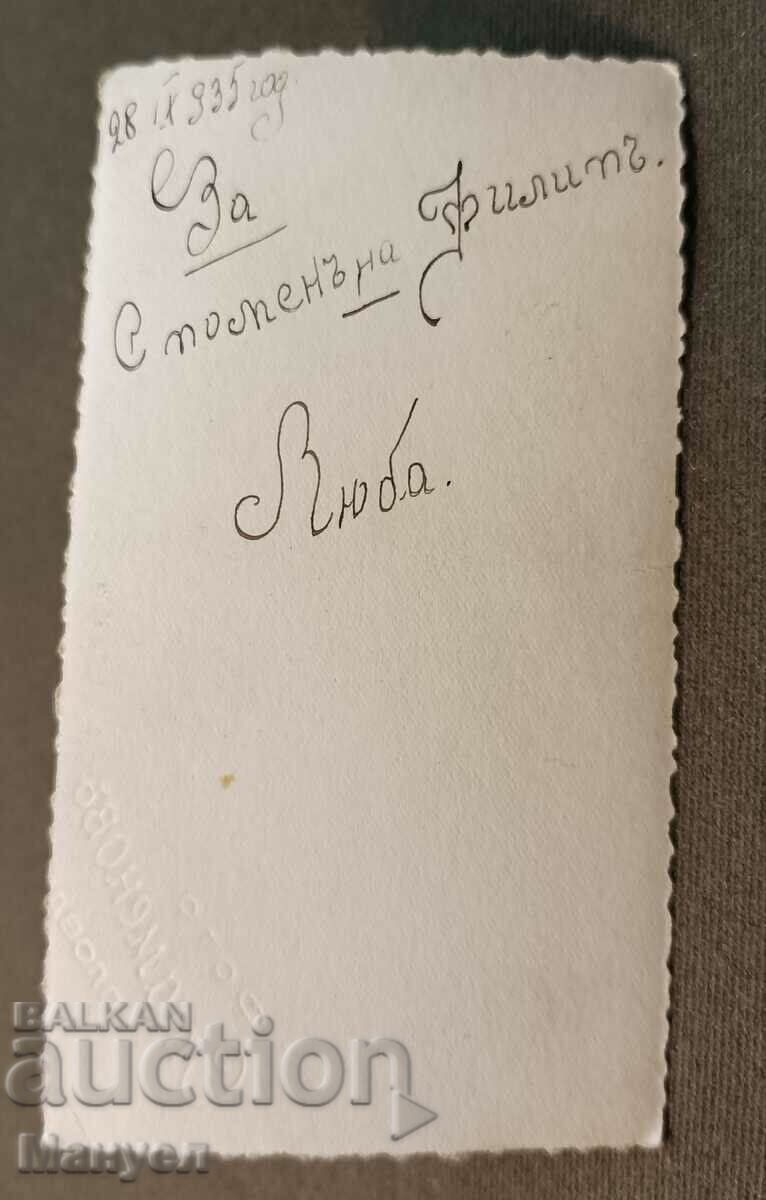 28 IX 935 год.
За
Споменъ на Филипъ.
Люба.
ФОТО
BALKAN
auction
Мануел